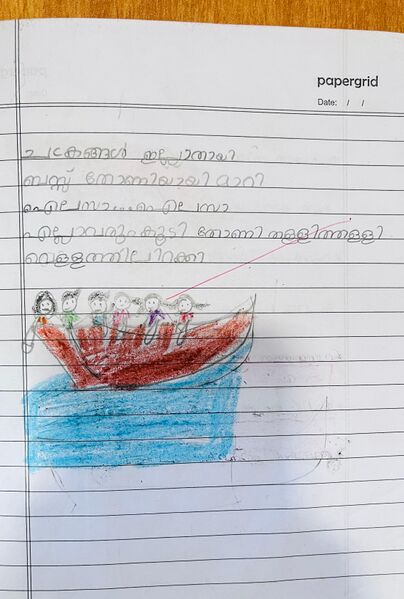 papergrid
Date: / /
ചക്രങ്ങൾ ഇല്ലാതായി
ബസ്സ് തോണിയായി മാറി
ഐലസാ ഐലസാ
എല്ലാവരുംകൂടി തോണി തള്ളിത്തള്ളി
വെള്ളത്തിലിറക്കി